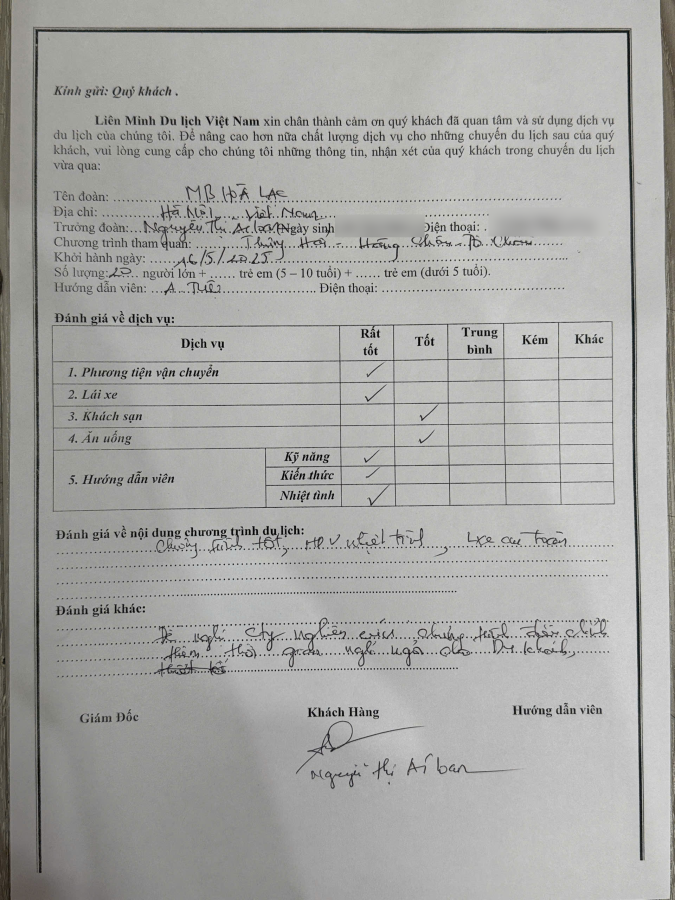 Kính gửi: Quý khách .
Liên Minh Du lịch Việt Nam xin chân thành cảm ơn quý khách đã quan tâm và sử dụng dịch vụ
du lịch của chúng tôi. Để nâng cao hơn nữa chất lượng dịch vụ cho những chuyến du lịch sau của quý
khách, vui lòng cung cấp cho chúng tôi những thông tin, nhận xét của quý khách trong chuyến du lịch
vừa qua:
Tên đoàn: MB HÒA LẠC
Địa chỉ: Hà Nội, Việt Nam
Trưởng đoàn: Nguyễn Thị Ái Lan Ngày sinh Điện thoại: .
Chương trình tham quan:
Khởi hành ngày: 16/5/2025
Số lượng: 20 người lớn + ...... trẻ em (5 – 10 tuổi) + ...... trẻ em (dưới 5 tuổi).
Hướng dẫn viên: A Điện thoại:
Đánh giá về dịch vụ:
Dịch vụ Rất tốt Tốt Trung bình Kém Khác
1. Phương tiện vận chuyển ✓
2. Lái xe ✓
3. Khách sạn ✓
4. Ăn uống ✓
5. Hướng dẫn viên Kỹ năng ✓
Kiến thức ✓
Nhiệt tình ✓
Đánh giá về nội dung chương trình du lịch:
Chương trình tốt, HDV nhiệt tình, Lxe an toàn
Đánh giá khác:
Đề nghị Cty nghiên cứu chương trình điều chỉnh
thêm thời gian nghỉ ngơi cho Du khách,
Giám Đốc Khách Hàng Hướng dẫn viên
Nguyễn Thị Ái Lan